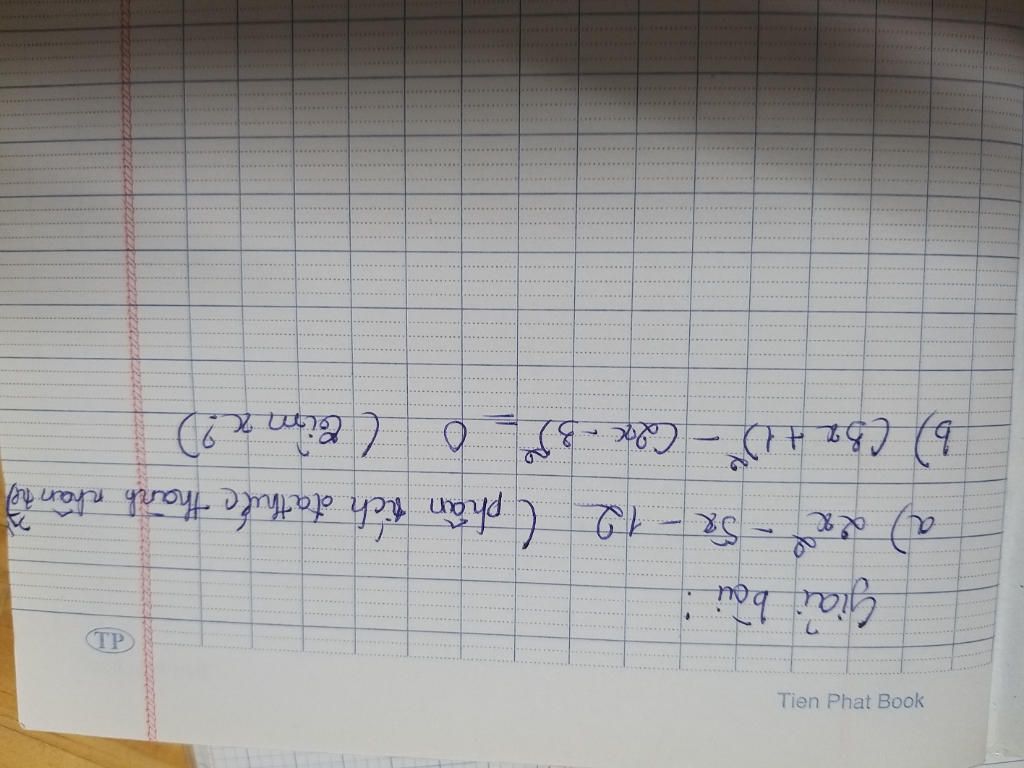 Tien Phat Book
TP
Giải bài :
a) 2x² - 5x - 12 (phân tích đa thức thành nhân tử)
b) (3x + 1)² - (2x - 3)² = 0 (tìm x?)